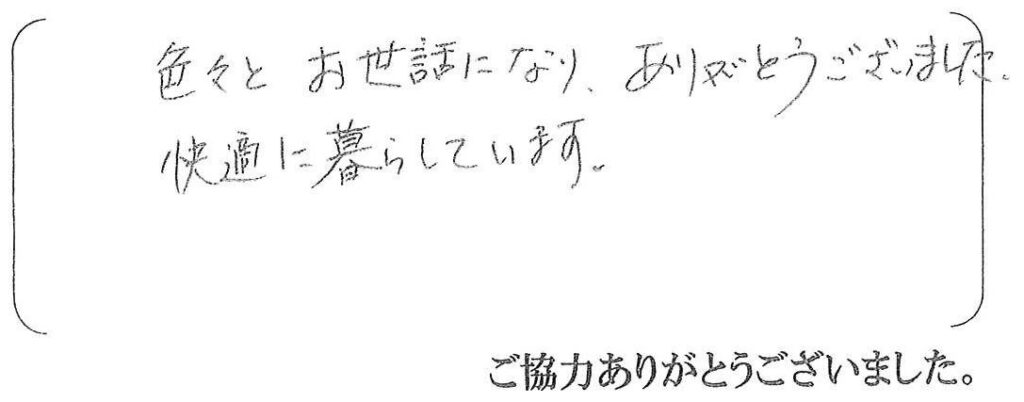 色々と お世話になり、ありがとうございました。
快適に暮らしています。
ご協力ありがとうございました。